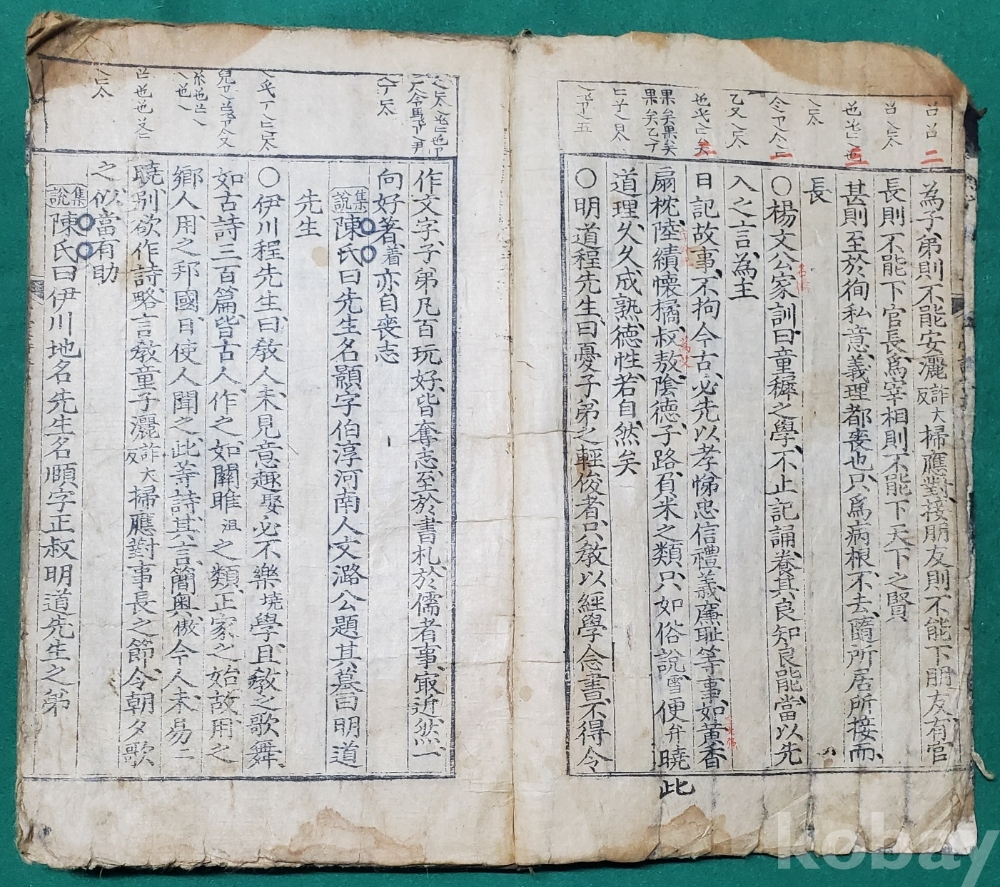 為子弟則不能安灑詐大反掃應對接朋友則不能下朋友有官
長則不能下官長爲宰相則不能下天下之賢
甚則至於徇私意義理都喪也只爲病根不去隨所居所接而
長
〇楊文公家訓曰童穉之學不止記誦養其良知良能當以先
入之言為主
日記故事不拘今古必先以孝悌忠信禮義廉恥等事如黃香
扇枕陸績懷橘叔敖陰德子路負米之類只如俗說雪便弁曉此
道理久久成熟德性若自然矣
〇明道程先生曰憂子弟之輕俊者只敎以經學念書不得令
作文字子弟凡百玩好皆奪志至於書札於儒者事㝡近然一
向好著着亦自喪志
集說陳氏曰先生名顥字伯淳河南人文潞公題其墓曰明道
先生
〇伊川程先生曰敎人未見意趣娶必不樂境學且敎之歌舞
如古詩三百篇皆古人作之如關雎沮之類正家之始故用之
鄉人用之邦國日使人聞之此等詩其言簡奧傲今人未易二
曉別欲作詩略言敎童子灑詐大反掃應對事長之節令朝夕歌
之似當有助
集說陳氏曰伊川地名先生名頤字正叔明道先生之弟
kobay